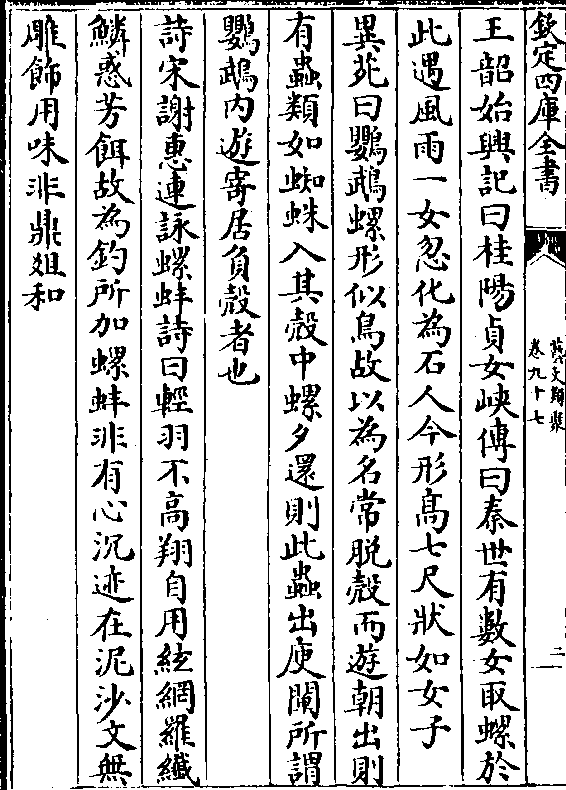 欽定四庫全書
藝文類聚
卷九十七
二
王韶始興記曰桂陽貞女峽傳曰秦世有數女取螺於
此遇風雨一女忽化為石人今形髙七尺狀如女子
異苑曰鸚鵡螺形似鳥故以為名常脱殻而遊朝出則
有蟲類如蜘蛛入其殻中螺夕還則此蟲出庾闡所謂
鸚鵡内遊寄居負殻者也
詩宋謝惠連詠螺蚌詩曰輕羽不高翔自用絃網羅纎
鱗惑芳餌故為釣所加螺蚌非有心沉迹在泥沙文無
雕飾用味非鼎俎和